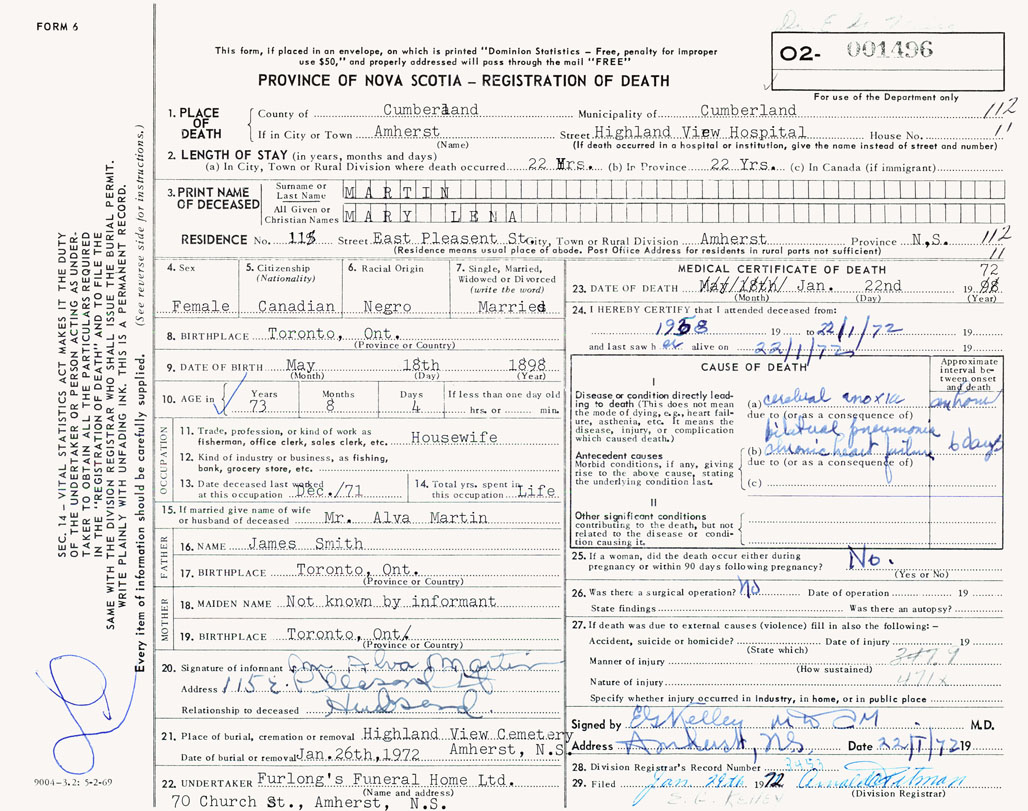 FORM 6
This form, if placed in an envelope, on which is printed "Dominion Statistics – Free, penalty for improper
use $50," and properly addressed will pass through the mail "FREE"
PROVINCE OF NOVA SCOTIA – REGISTRATION OF DEATH
02- 001496
For use of the Department only
1. PLACE OF DEATH County of Cumberland Municipality of Cumberland 112
If in City or Town Amherst Street Highland View Hospital House No. 11
(Name) (If death occurred in a hospital or institution, give the name instead of street and number)
2. LENGTH OF STAY (in years, months and days)
(a) In City, Town or Rural Division where death occurred 22 Yrs. (b) In Province 22 Yrs. (c) In Canada (if immigrant)
3. PRINT NAME OF DECEASED
Surname or Last Name MARTIN
All Given or Christian Names MARY LENA
RESIDENCE No. 115 Street East Pleasent St. City, Town or Rural Division Amherst Province N.S. 112
(Residence means usual place of abode. Post Office Address for residents in rural parts not sufficient) 11
4. Sex
Female
5. Citizenship
(Nationality)
Canadian
6. Racial Origin
Negro
7. Single, Married,
Widowed or Divorced
(write the word)
Married
8. BIRTHPLACE Toronto, Ont.
(Province or Country)
9. DATE OF BIRTH May 18th 1898
(Month) (Day) (Year)
10. AGE in Years Months Days If less than one day old
73 8 4 hrs. or min.
OCCUPATION
11. Trade, profession, or kind of work as
fisherman, office clerk, sales clerk, etc. Housewife
12. Kind of industry or business, as fishing,
bank, grocery store, etc.
13. Date deceased last worked
at this occupation Dec./71
14. Total yrs. spent in
this occupation Life
15. If married give name of wife
or husband of deceased Mr. Alva Martin
FATHER
16. NAME James Smith
17. BIRTHPLACE Toronto, Ont.
(Province or Country)
MOTHER
18. MAIDEN NAME Not known by informant
19. BIRTHPLACE Toronto, Ont.
(Province or Country)
20. Signature of informant Alva Martin
Address 115 E. Pleasant St
Relationship to deceased Husband
21. Place of burial, cremation or removal Highland View Cemetery
Date of burial or removal Jan.26th,1972 Amherst, N.S.
22. UNDERTAKER Furlong's Funeral Home Ltd.
(Name and address)
70 Church St., Amherst, N.S.
MEDICAL CERTIFICATE OF DEATH 72
23. DATE OF DEATH May/18th/ Jan. 22nd 19 98
(Month) (Day) (Year)
24. I HEREBY CERTIFY that I attended deceased from:
1958 19 to 22/1/72 19
and last saw h er alive on 22/1/72 19
CAUSE OF DEATH
Approximate
interval be-
tween onset
and death
I
Disease or condition directly lead-
ing to death (This does not mean
the mode of dying, e.g., heart fail-
ure, asthenia, etc. It means the
disease, injury, or complication
which caused death.)
(a) cerebral anoxia an hour
due to (or as a consequence of)
bilateral pneumonia
Antecedent causes
Morbid conditions, if any, giving
rise to the above cause, stating
the underlying condition last.
(b) chronic heart failure 6 days
due to (or as a consequence of)
(c)
II
Other significant conditions
contributing to the death, but not
related to the disease or condi-
tion causing it.
25. If a woman, did the death occur either during
pregnancy or within 90 days following pregnancy? No.
(Yes or No)
26. Was there a surgical operation? No Date of operation 19
State findings Was there an autopsy?
27. If death was due to external causes (violence) fill in also the following:–
Accident, suicide or homicide? Date of injury 19
(State which) 347.9
Manner of injury
(How sustained)
Nature of injury 471x
Specify whether injury occurred in industry, in home, or in public place
Signed by E G Kelley MD CM M.D.
Address Amherst, N.S. Date 22/I/72 19
28. Division Registrar's Record Number
29. Filed Jan. 29th 1972 Pitman
(Division Registrar)
SEC. 14 – VITAL STATISTICS ACT MAKES IT THE DUTY
OF THE UNDERTAKER OR PERSON ACTING AS UNDER-
TAKER TO OBTAIN ALL THE PARTICULARS REQUIRED
IN THE "REGISTRATION OF DEATH" AND TO FILE THE
SAME WITH THE DIVISION REGISTRAR WHO SHALL ISSUE THE BURIAL PERMIT.
WRITE PLAINLY WITH UNFADING INK. THIS IS A PERMANENT RECORD.
Every item of information should be carefully supplied. (See reverse side for instructions.)
9004-3.2: 5-2-69